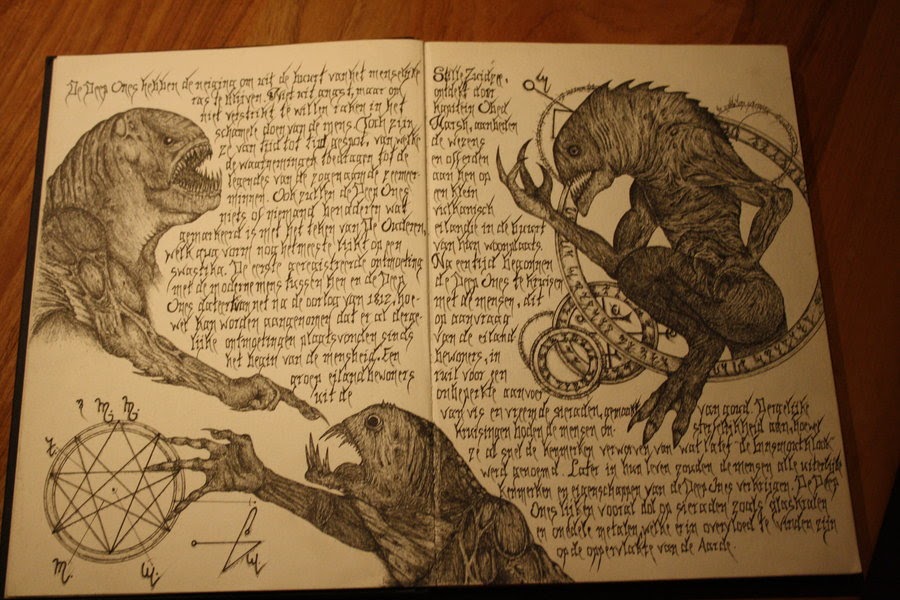 De Deep Ones hebben de neiging om uit de buurt van het menselijke
ras te blijven. Niet uit angst, maar om
niet verstrikt te willen raken in het
schamele doen van de mens. Toch zijn
ze van tijd tot tijd gespot, van welke
de waarnemingen bijdragen tot de
legendes van de zogenaamde zeemeer-
minnen. Ook zullen de Deep Ones
niets of niemand benaderen wat
gemarkeerd is met het teken van De Ouderen,
welk qua vorm nog het meeste lijkt op een
swastika. De eerste geregistreerde ontmoeting
met de moderne mens tussen hen en de Deep
Ones dateert van net na de oorlog van 1812, hoe-
wel kan worden aangenomen dat er al derge-
lijke ontmoetingen plaatsvonden sinds
het begin van de mensheid. Een
groep eilandbewoners
uit de
Stille Zuidzee,
ontdekt door
kapitein Obed
Marsh, aanbeden
de wezens
en offerden
aan hen op
een klein
vulkanisch
eilandje in de buurt
van hun woonplaats.
Na een tijd begonnen
de Deep Ones te kruisen
met de mensen, dit
op aanvraag
van de eiland-
bewoners, in
ruil voor een
onbeperkte aanvoer
van vis en vreemde sieraden, gemaakt van goud. Dergelijke
kruisingen boden de mensen on- sterfelijkheid aan, hoewel
ze al snel de kenmerken verwerven van wat later "de Innsmouth look"
werd genoemd. Later in hun leven zouden de mensen alle uiterlijke
kenmerken en eigenschappen van de Deep Ones verkrijgen. De Deep
Ones lijken vooral dol op sieraden zoals glaskralen
en onedele metalen, welke er in overvloed te vinden zijn
op de oppervlakte van de Aarde.